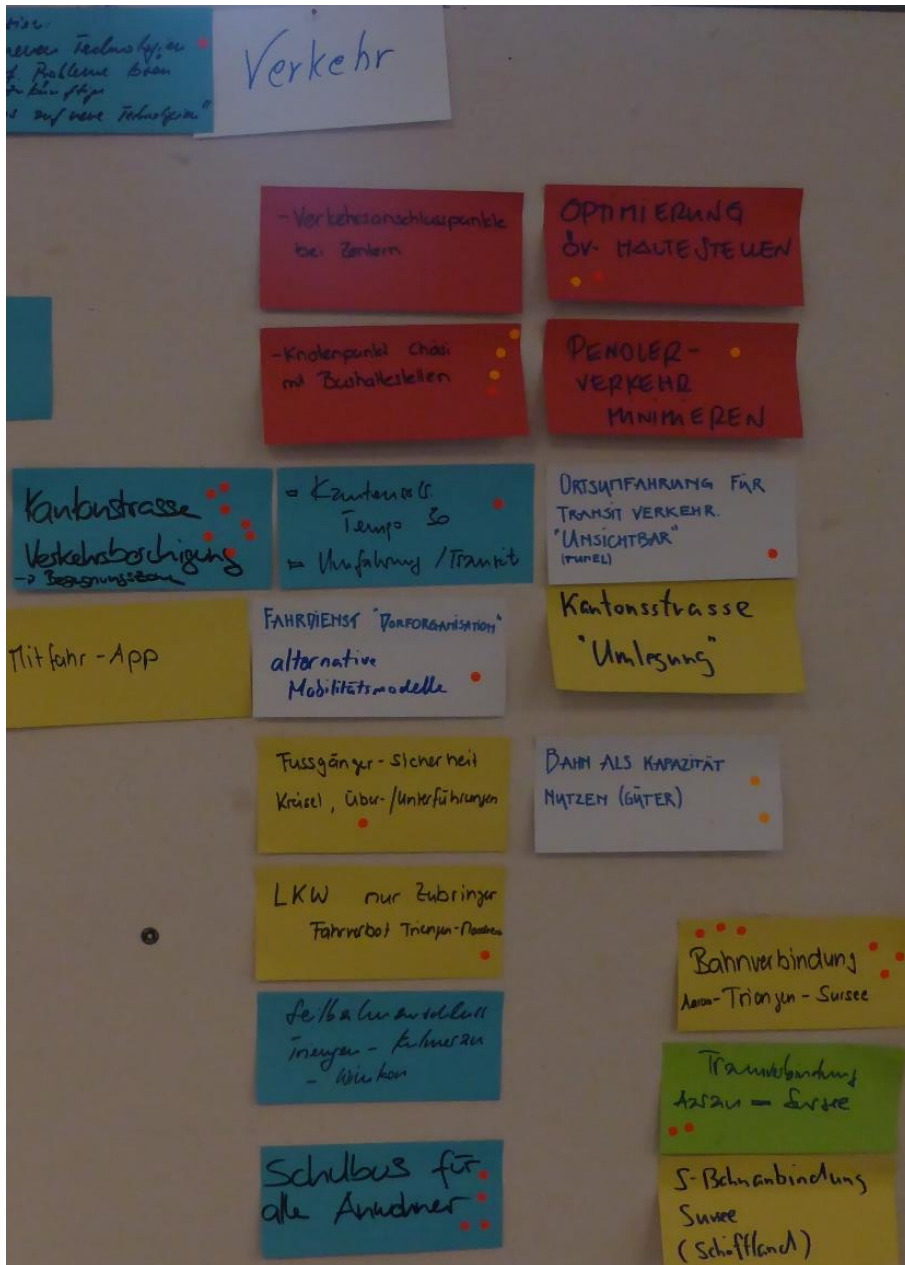 neuen Technologien
Probleme lösen
künftige
auf neue Technologien"
Verkehr
- Verkehrsanschlusspunkte
bei Zentern
OPTIMIERUNG
ÖV- HALTESTELLEN
- Knotenpunkt Chäsi
mit Bushaltestellen
PENDLER-
VERKEHR
MINIMIEREN
Kantonstrasse
Verkehrsberuhigung
-> Begegnungszone
= Kantonsstr.
Tempo 30
= Umfahrung / Transit
ORTSUMFAHRUNG FÜR
TRANSIT VERKEHR.
"UNSICHTBAR"
(TUNEL)
Mitfahr-App
FAHRDIENST "DORFORGANISATION"
alternative
Mobilitätsmodelle
Kantonsstrasse
"Umlegung"
Fussgänger-Sicherheit
Kreisel, Über-/Unterführungen
BAHN ALS KAPAZITÄT
NUTZEN (GÜTER)
LKW nur Zubringer
Fahrverbot Triengen-
Bahnverbindung
Aarau-Triengen-Sursee
Seilbahnanschluss
Triengen - Kulmerau
- Winikon
Tramverbindung
Aarau - Sursee
Schulbus für
alle Anwohner
S-Bahnanbindung
Sursee
(Schöftland)